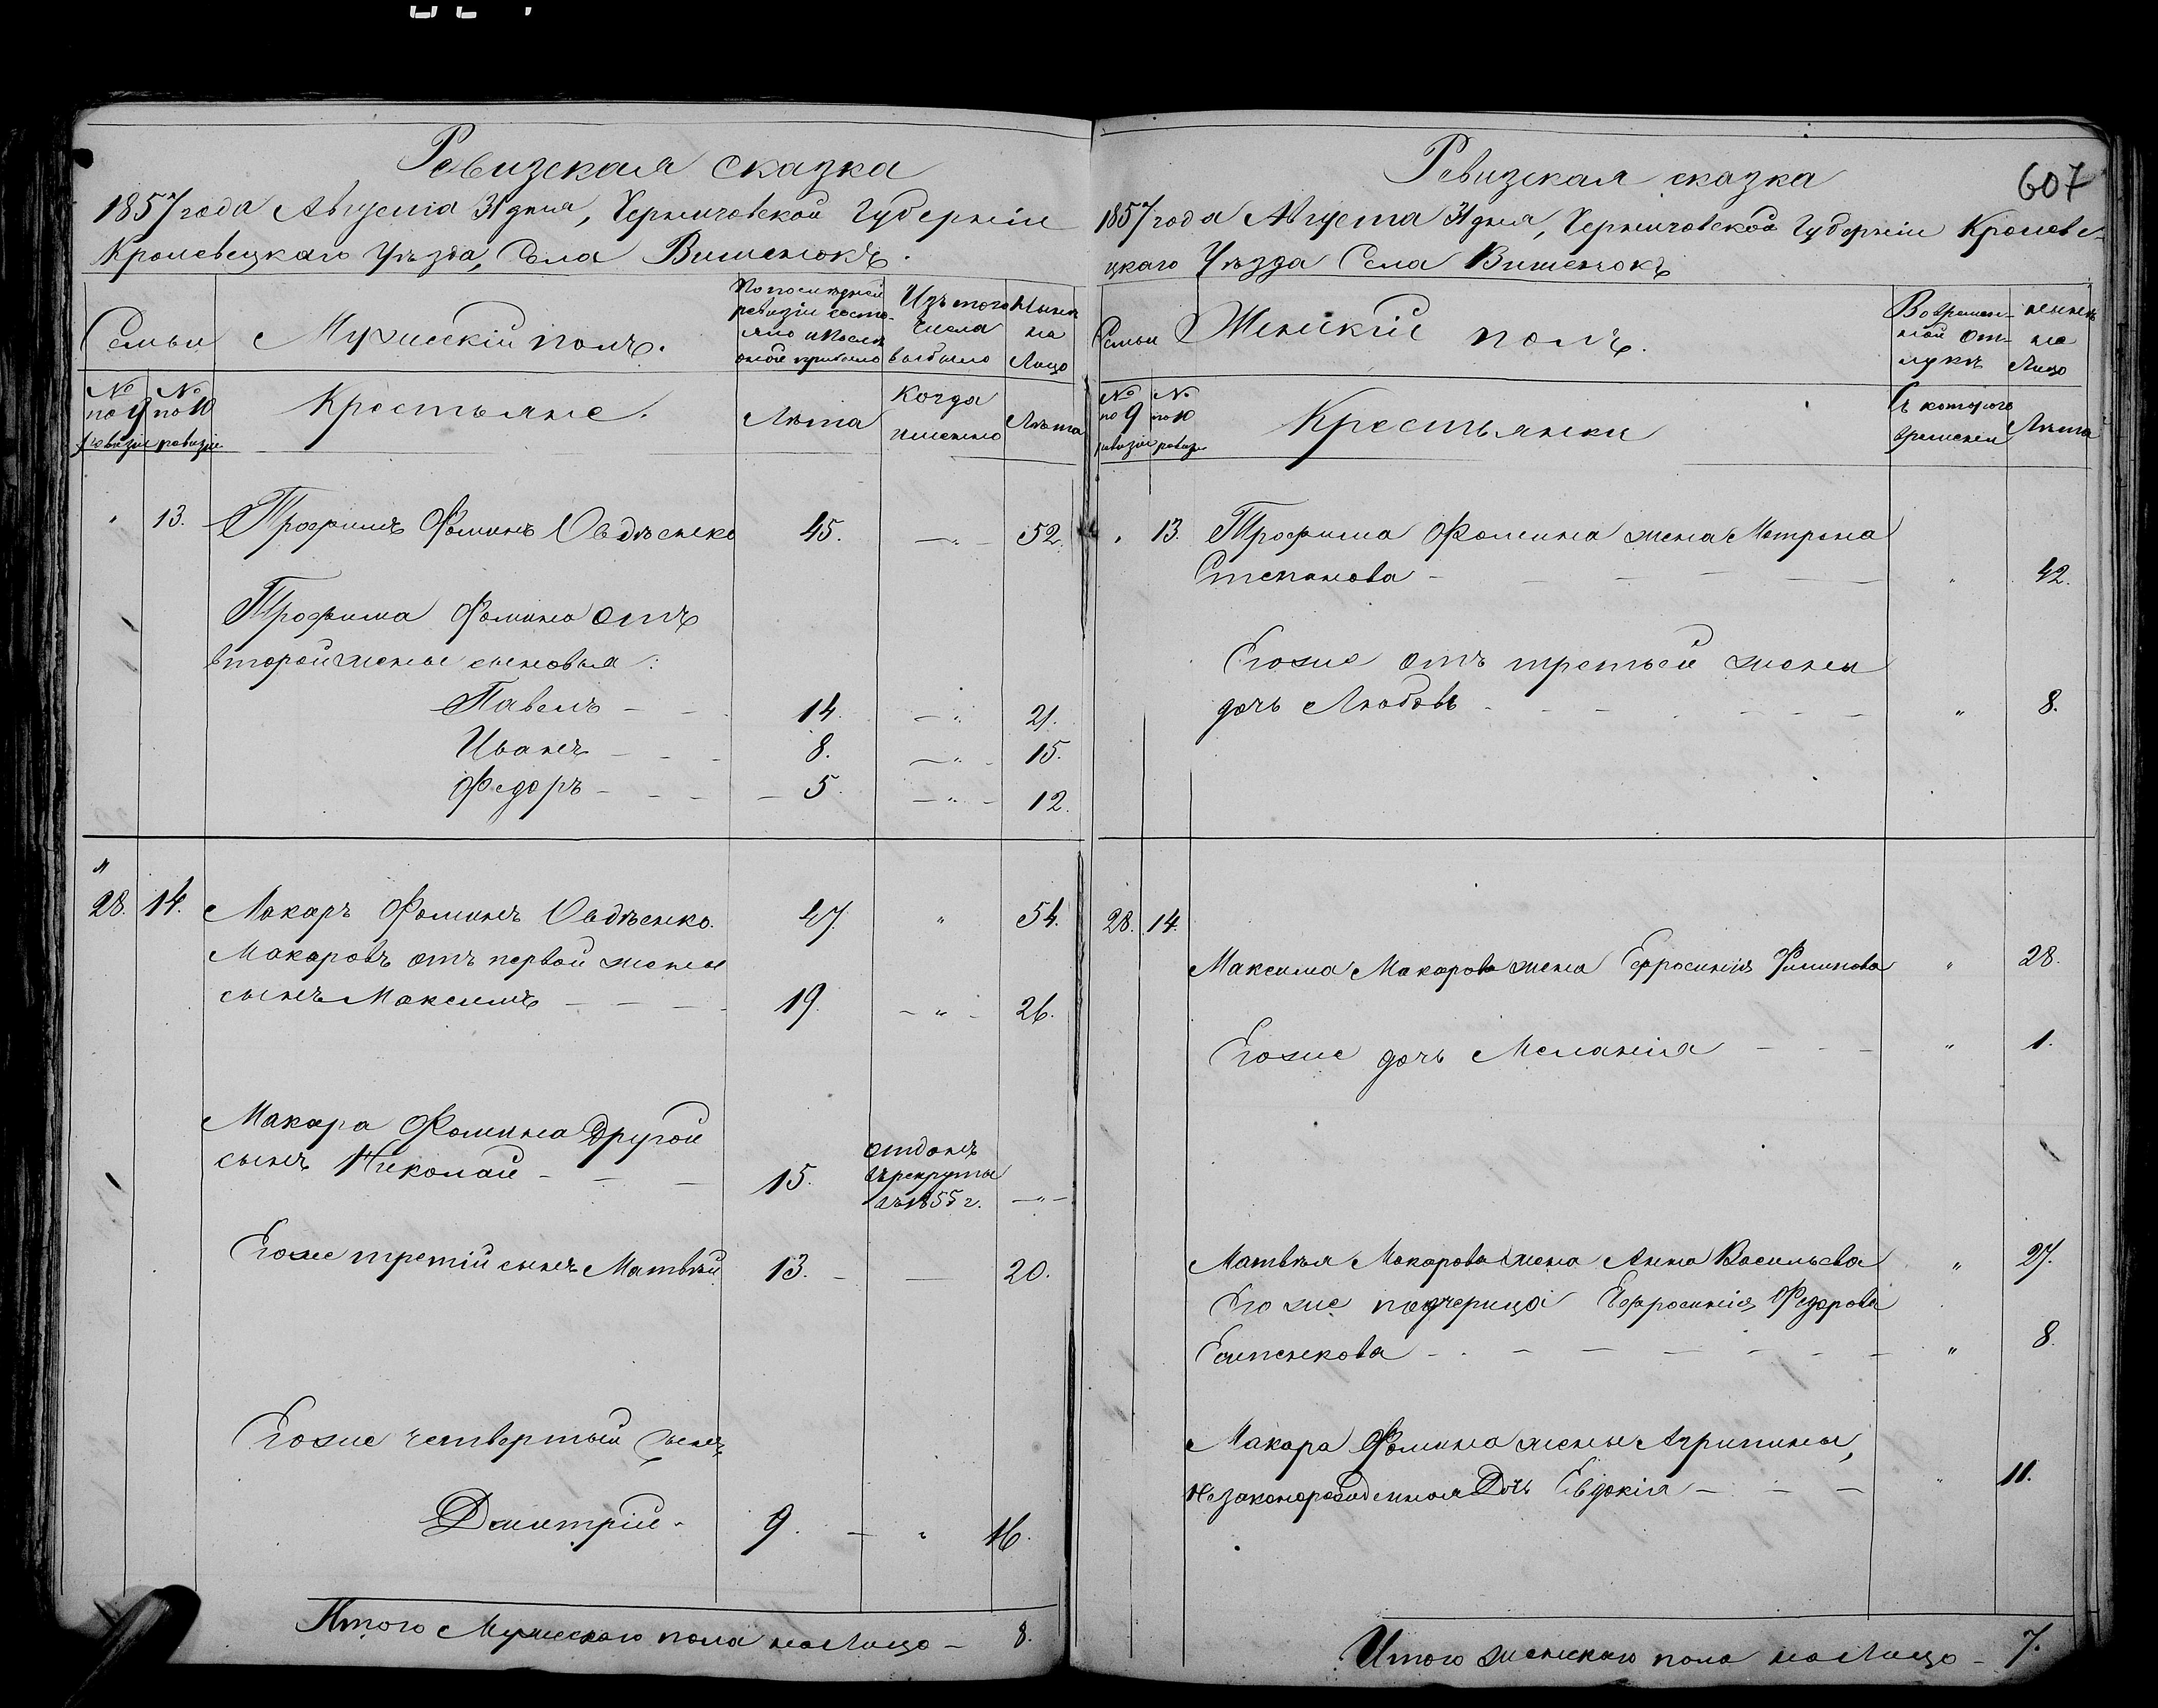 607
Ревизская сказка
1857 года Августа 31 дня, Черниговской Губерніи
Кролевецкаго Уѣзда, Села Вишенокъ.
Семьи
Мужескій полъ.
По последней
ревизіи состо-
яло и после
оной прибыло
Изъ того
числа
выбыло
Ныне
на
Лицо
№ по 9 ревизіи
№ по 10 ревизіи
Крестьяне.
Лѣта
Когда
именно
Лѣта
" 13. Трофимъ Фоминъ Овдѣенко 45. — " — 52.
Трофима Фомина отъ
второй жены сыновья:
Павелъ — — 14. — " 21.
Иванъ — — — 8. — " — 15.
Федоръ — — — — 5. — " — 12.
"
28. 14. Макаръ Фоминъ Овдѣенко. 47. " 54.
Макаровъ отъ первой жены
сынъ Максимъ — — — — 19. — " — 26.
Макара Фомина другой
сынъ Николай — — — 15. отданъ
въ рекруты
въ 1855 г. — " —
Егоже третій сынъ Матвѣй 13. — — 20.
Егоже четвертый сынъ
Дмитрій. 9. — " 16.
Итого Мужескаго пола налицо — 8.
Ревизская сказка
1857 года Августа 31 дня, Черниговской Губерніи Кролеве-
цкаго Уѣзда Села Вишенокъ
Семьи
Женскій полъ.
Во времен-
ной от-
лучкѣ
нынѣ
на
Лицо
№ по 9 ревизіи
№ по 10 ревизіи
Крестьянки
Съ котораго
времени
Лѣта
" 13. Трофима Фомина жена Матрона
Степанова — — — — — — " 42.
Егоже отъ третьей жены
дочь Любовь — — — — — — — " 8.
28. 14.
Максима Макарова жена Ефросинія Филипова " 28.
Егоже дочь Меланія — — — " 1.
Матвѣя Макарова жена Анна Васильева " 27.
Егоже падчерица Ефросинія Федорова
— — — — — — — " 8.
Макара Фомина жены Агрипины,
незаконорожденная Дочь Евдокія — — — " 11.
Итого женскаго пола налицо — 7.